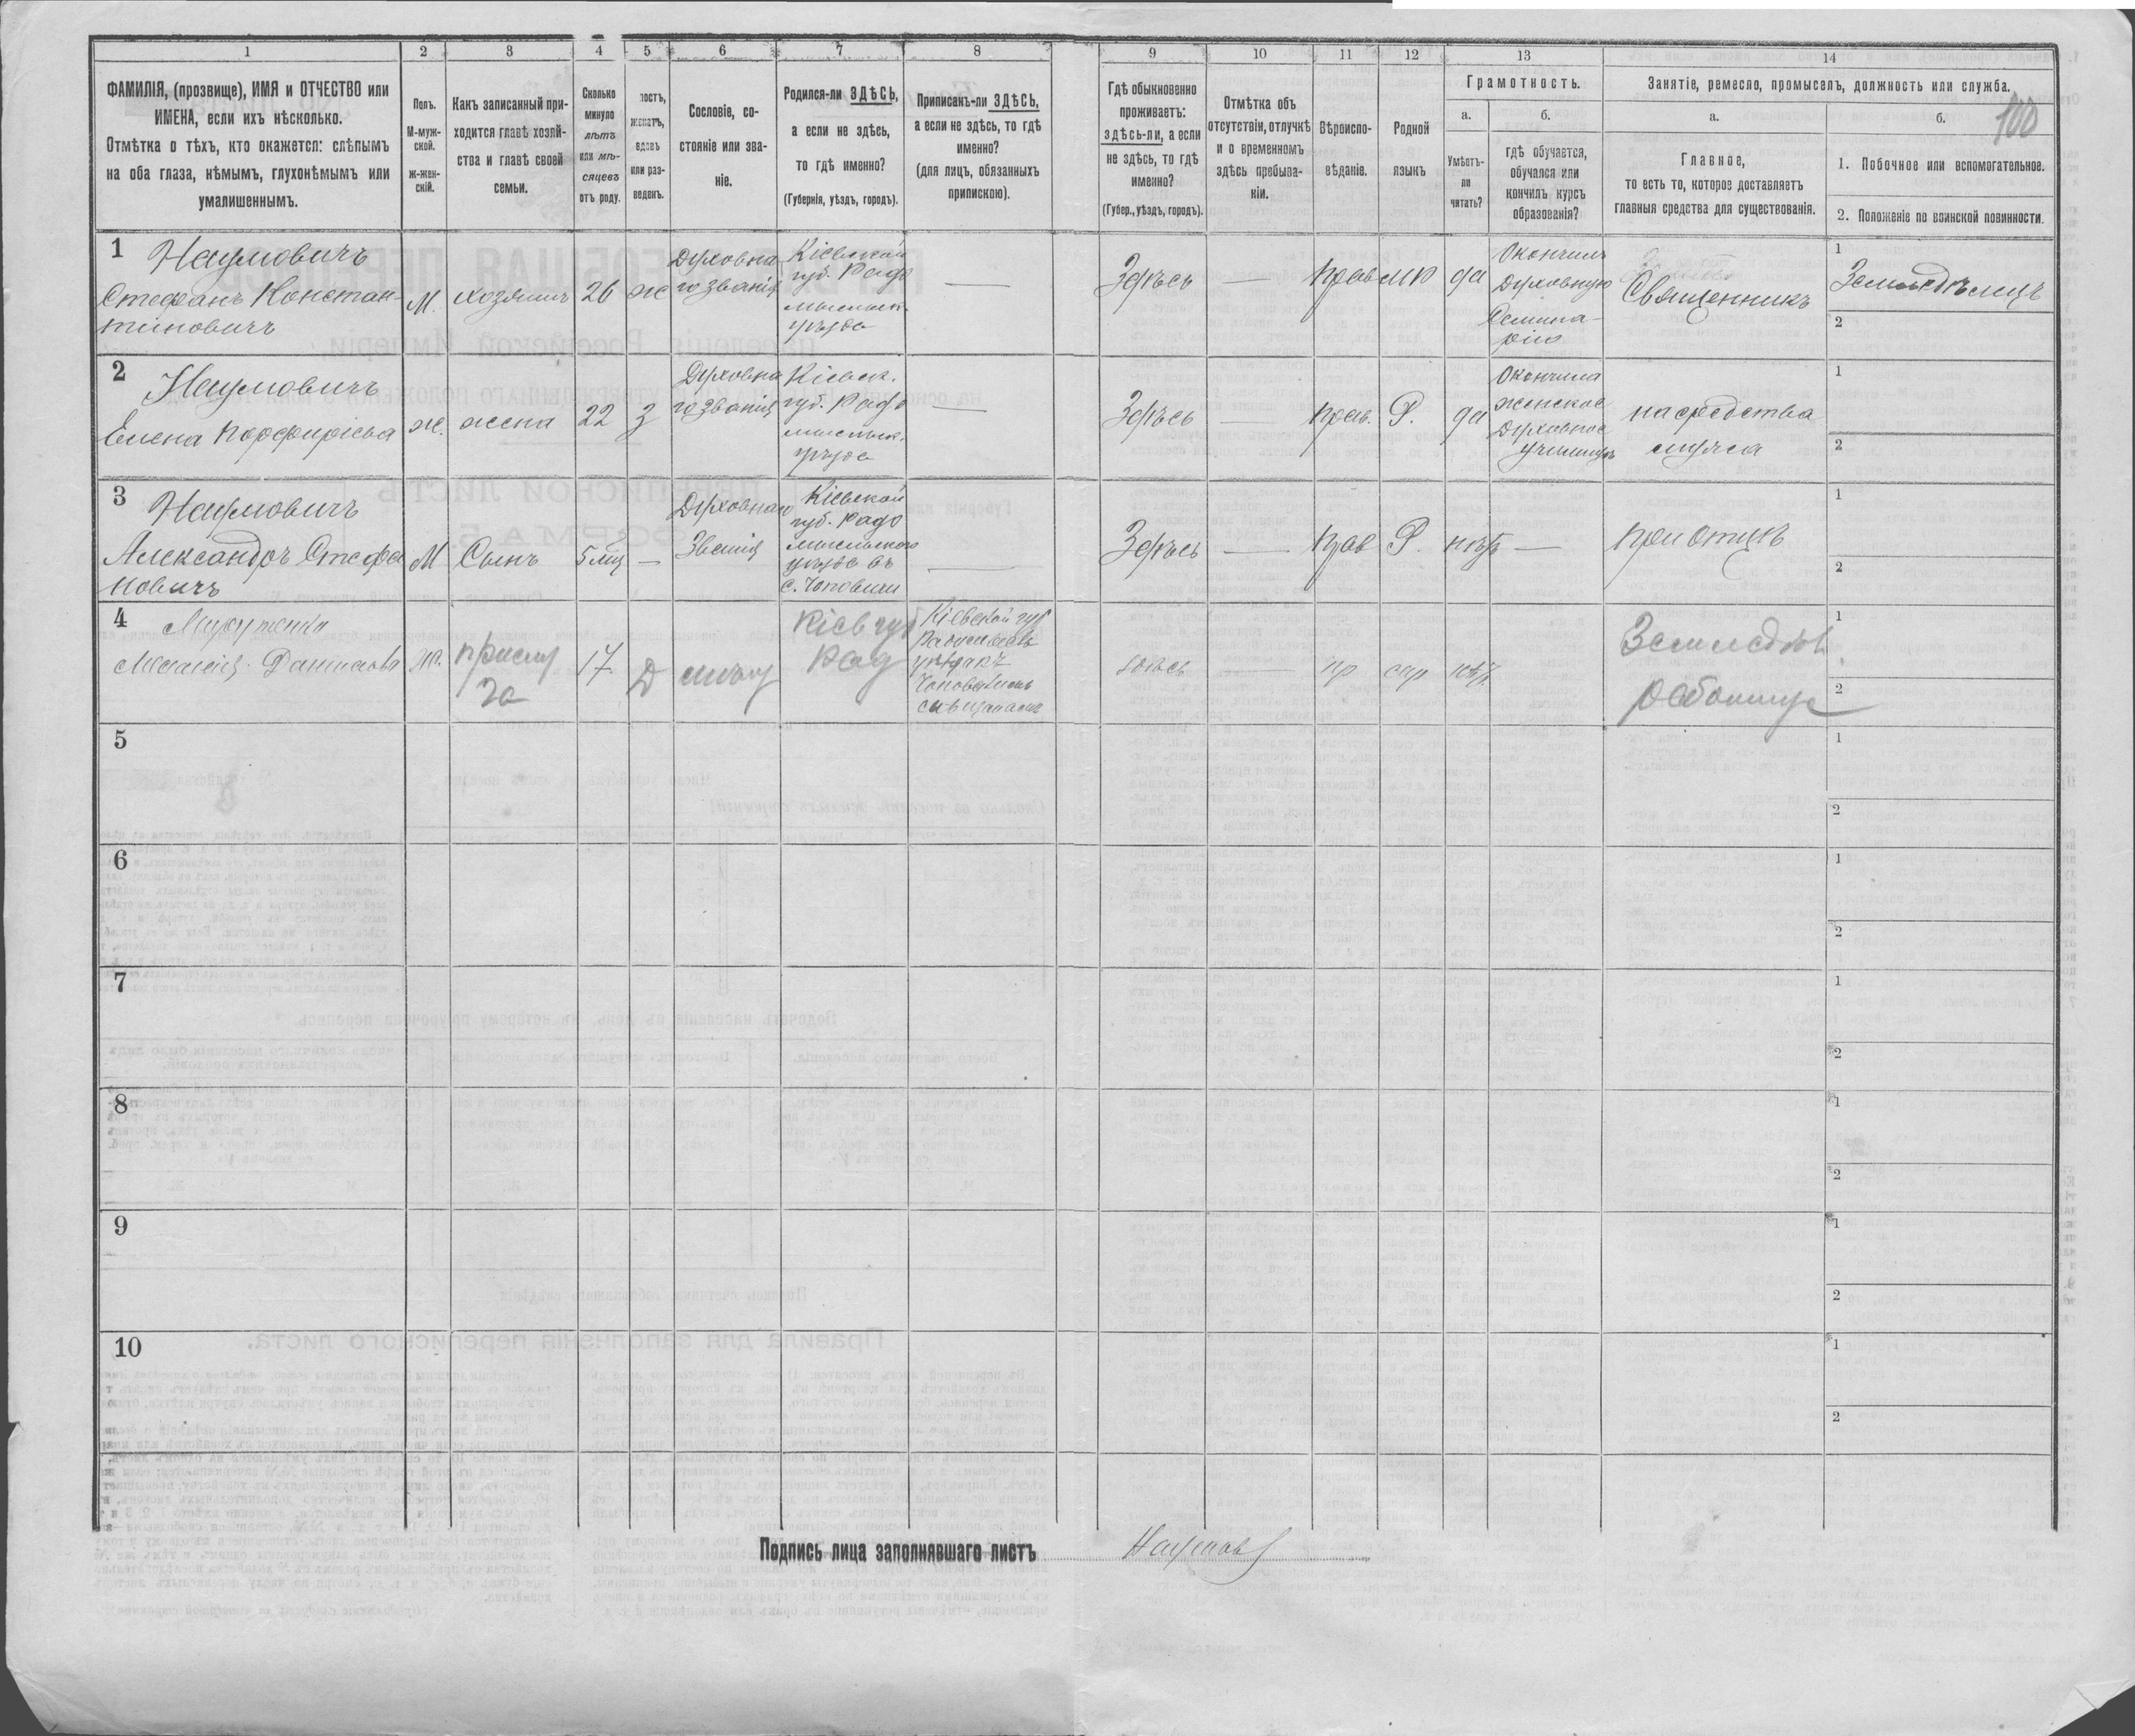 1
2
3
4
5
6
7
8
9
10
11
12
13
14
100
ФАМИЛІЯ, (прозвище), ИМЯ и ОТЧЕСТВО или
ИМЕНА, если ихъ нѣсколько.
Отмѣтка о тѣхъ, кто окажется: слѣпымъ
на оба глаза, нѣмымъ, глухонѣмымъ или
умалишеннымъ.
Полъ.
М-муж-
ской.
ж-жен-
скій.
Какъ записанный при-
ходится главѣ хозяй-
ства и главѣ своей
семьи.
Сколько
минуло
лѣтъ
или мѣ-
сяцевъ
отъ роду.
лостъ,
женатъ,
вдовъ
или раз-
веденъ.
Сословіе, со-
стояніе или зва-
ніе.
Родился-ли ЗДѢСЬ,
а если не здѣсь,
то гдѣ именно?
(Губернія, уѣздъ, городъ).
Приписанъ-ли ЗДѢСЬ,
а если не здѣсь, то гдѣ
именно?
(для лицъ, обязанныхъ
припискою).
Гдѣ обыкновенно
проживаетъ:
здѣсь-ли, а если
не здѣсь, то гдѣ
именно?
(Губер., уѣздъ, городъ).
Отмѣтка объ
отсутствіи, отлучкѣ
и о временномъ
здѣсь пребыва-
ніи.
Вѣроиспо-
вѣданіе.
Родной
языкъ
Грамотность.
а.
б.
Умѣетъ-
ли
читать?
гдѣ обучается,
обучался или
кончилъ курсъ
образованія?
Занятіе, ремесло, промыселъ, должность или служба.
а.
б.
Главное,
то есть то, которое доставляетъ
главныя средства для существованія.
1. Побочное или вспомогательное.
2. Положеніе по воинской повинности.
1 Наумовичъ
Стефанъ Констан-
тиновичъ
М.
хозяинъ
26
ж
Духовна
го званія
Кіевской
губ. Радо
мысльск.
уѣзда
—
Здѣсь
—
прав
да
Окончилъ
Духовную
Семина-
рію
Священникъ
1
Земледѣлецъ
2
2 Наумовичъ
Елена Порфиріева
ж.
жена
22
З
Духовна
го званія
Кіевск.
губ. Радо
мысльск.
уѣзда
—
Здѣсь
—
прав.
Р.
да
Окончила
женское
Духовное
училище
на средства
мужа
1
2
3 Наумовичъ
Александръ Стефа
новичъ
М
Сынъ
5 мц
—
Духовнаго
Званія
Кіевской
губ. Радо
мысльского
уѣзда въ
с. Чоповичи
—
Здѣсь
—
прав
Р.
нѣтъ
—
при отцѣ
1
2
4
Данилова
Ж.
прислу
га
17
Д
Кіев губ
Рад
Кіевской губ
здѣсь
—
пр
нѣтъ
Земледѣл
работница
1
2
5
1
2
6
1
2
7
1
2
8
1
2
9
1
2
10
1
2
Подпись лица заполнявшаго листъ